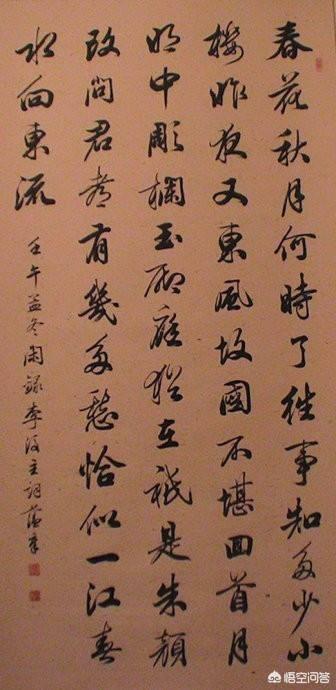 春花秋月何時了往事知多少小
樓昨夜又東風故國不堪回首月
明中彫欄玉砌應猶在祇是朱顏
改問君都有幾多愁恰似一江春
水向東流
壬午孟冬閑錄李後主詞
悟空问答